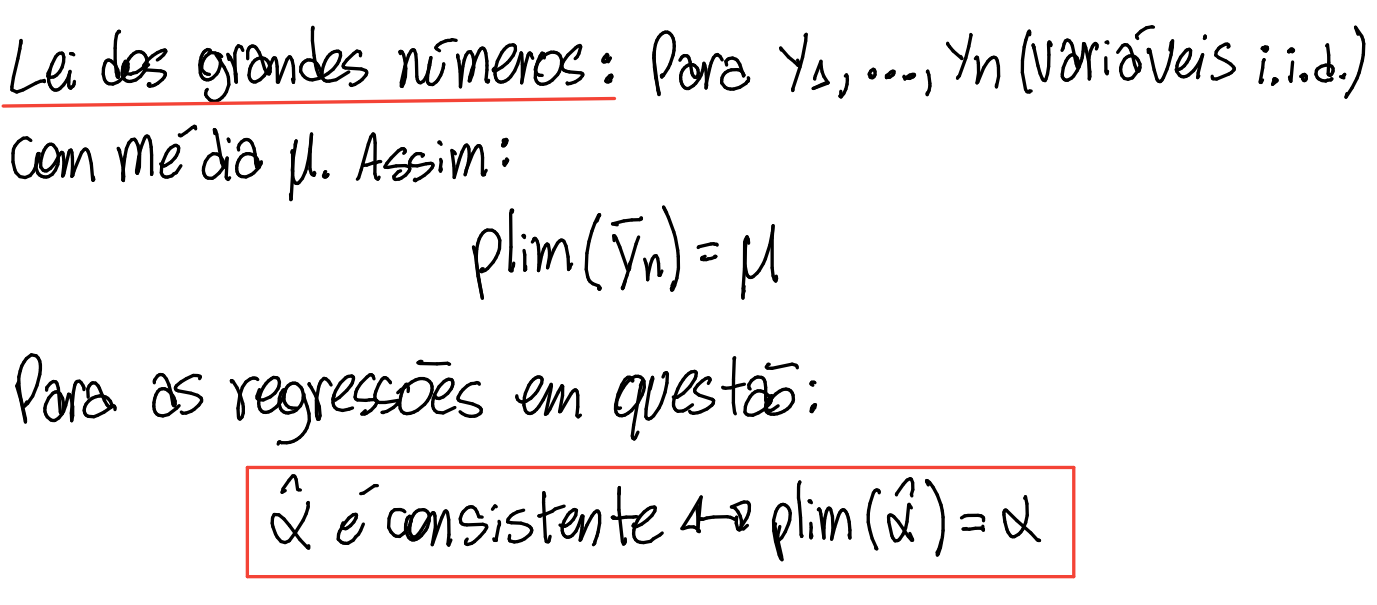 Lei dos grandes números: Para y₁, ..., yₙ (variáveis i.i.d.)
com média μ. Assim:
plim(ȳₙ) = μ
Para as regressões em questão:
α̂ é consistente ↔ plim(α̂) = α